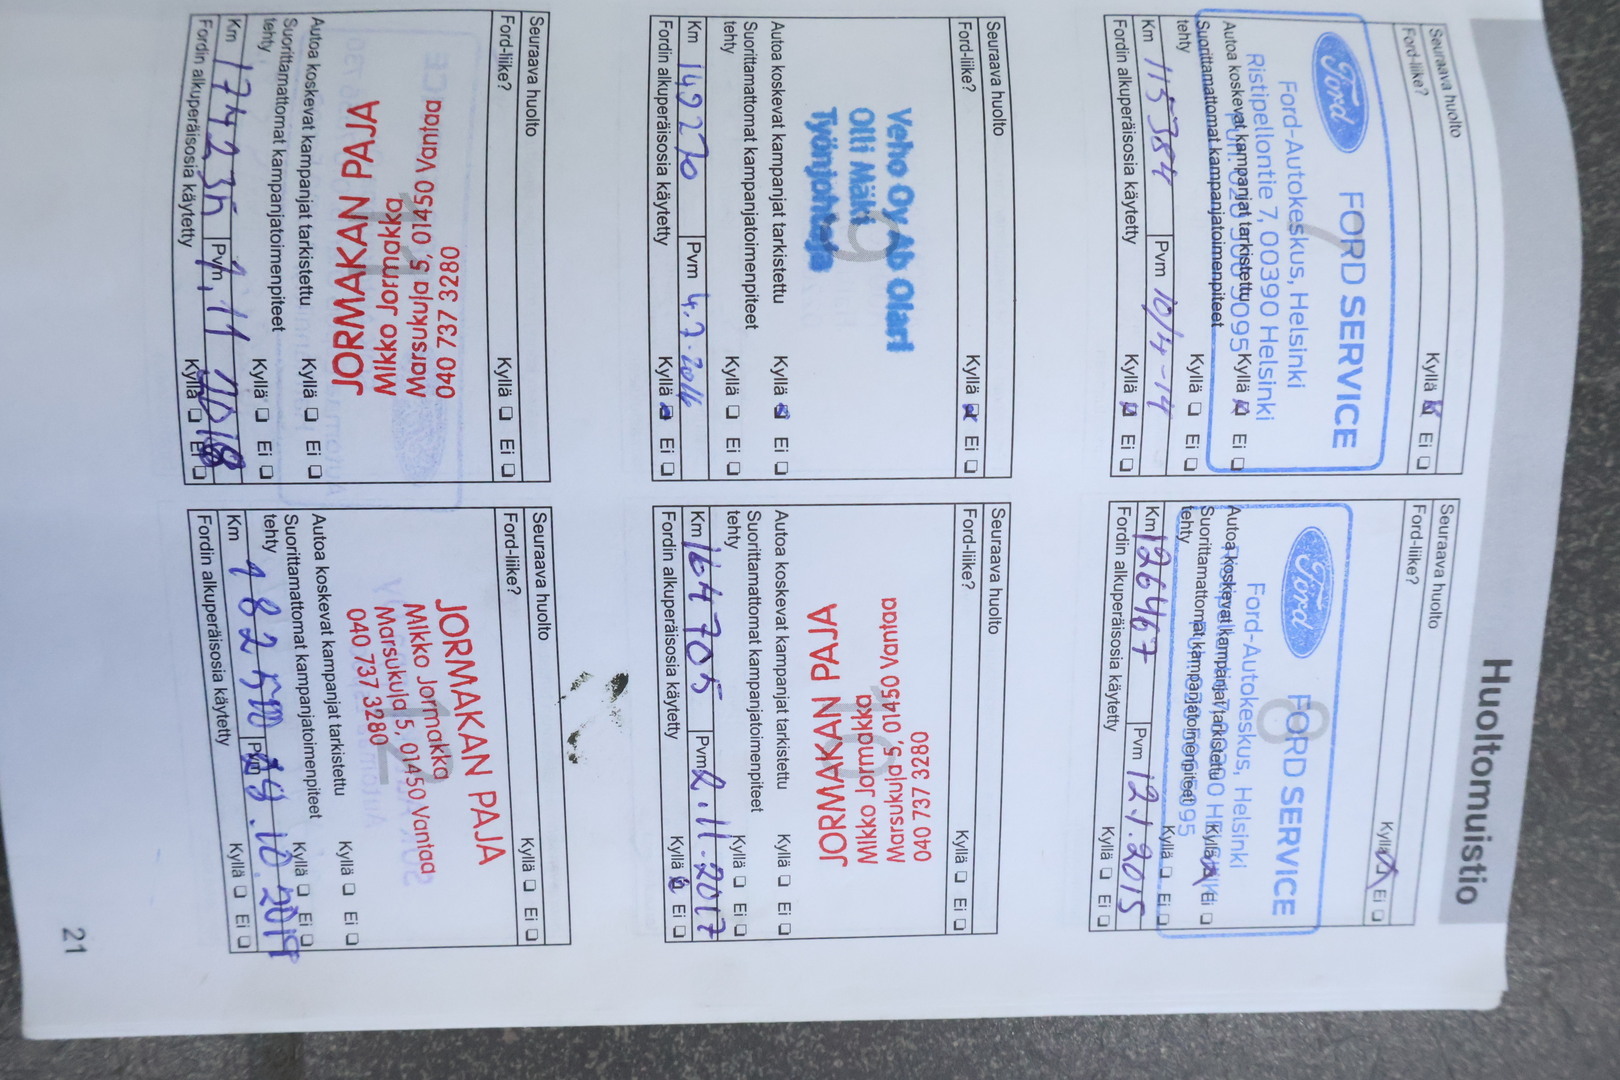 Huoltomuistio
Seuraava huolto
Ford-liike? Kyllä Ei
7
Ford
FORD SERVICE
Ford-Autokeskus, Helsinki
Ristipellontie 7, 00390 Helsinki
Autoa koskevat kampanjat tarkistettu Kyllä Ei
Suorittamattomat kampanjatoimenpiteet
tehty Kyllä Ei
Km 115384 Pvm 10/4-14
Fordin alkuperäisosia käytetty Kyllä Ei
Seuraava huolto
Ford-liike? Kyllä Ei
8
Ford
FORD SERVICE
Ford-Autokeskus, Helsinki
Autoa koskevat kampanjat tarkistettu Kyllä Ei
Suorittamattomat kampanjatoimenpiteet
tehty Kyllä Ei
Km 126467 Pvm 12.1.2015
Fordin alkuperäisosia käytetty Kyllä Ei
Seuraava huolto
Ford-liike? Kyllä Ei
9
Veho Oy Ab Olari
Olli Mäki
Työnjohtaja
Autoa koskevat kampanjat tarkistettu Kyllä Ei
Suorittamattomat kampanjatoimenpiteet
tehty Kyllä Ei
Km 149270 Pvm 4.7.2016
Fordin alkuperäisosia käytetty Kyllä Ei
Seuraava huolto
Ford-liike? Kyllä Ei
10
JORMAKAN PAJA
Mikko Jormakka
Marsukuja 5, 01450 Vantaa
040 737 3280
Autoa koskevat kampanjat tarkistettu Kyllä Ei
Suorittamattomat kampanjatoimenpiteet
tehty Kyllä Ei
Km 164705 Pvm 2.11.2017
Fordin alkuperäisosia käytetty Kyllä Ei
Seuraava huolto
Ford-liike? Kyllä Ei
11
JORMAKAN PAJA
Mikko Jormakka
Marsukuja 5, 01450 Vantaa
040 737 3280
Autoa koskevat kampanjat tarkistettu Kyllä Ei
Suorittamattomat kampanjatoimenpiteet
tehty Kyllä Ei
Km 174235 Pvm 1.11 2018
Fordin alkuperäisosia käytetty Kyllä Ei
Seuraava huolto
Ford-liike? Kyllä Ei
12
JORMAKAN PAJA
Mikko Jormakka
Marsukuja 5, 01450 Vantaa
040 737 3280
Autoa koskevat kampanjat tarkistettu Kyllä Ei
Suorittamattomat kampanjatoimenpiteet
tehty Kyllä Ei
Km 182500 Pvm 29.10.2019
Fordin alkuperäisosia käytetty Kyllä Ei
21